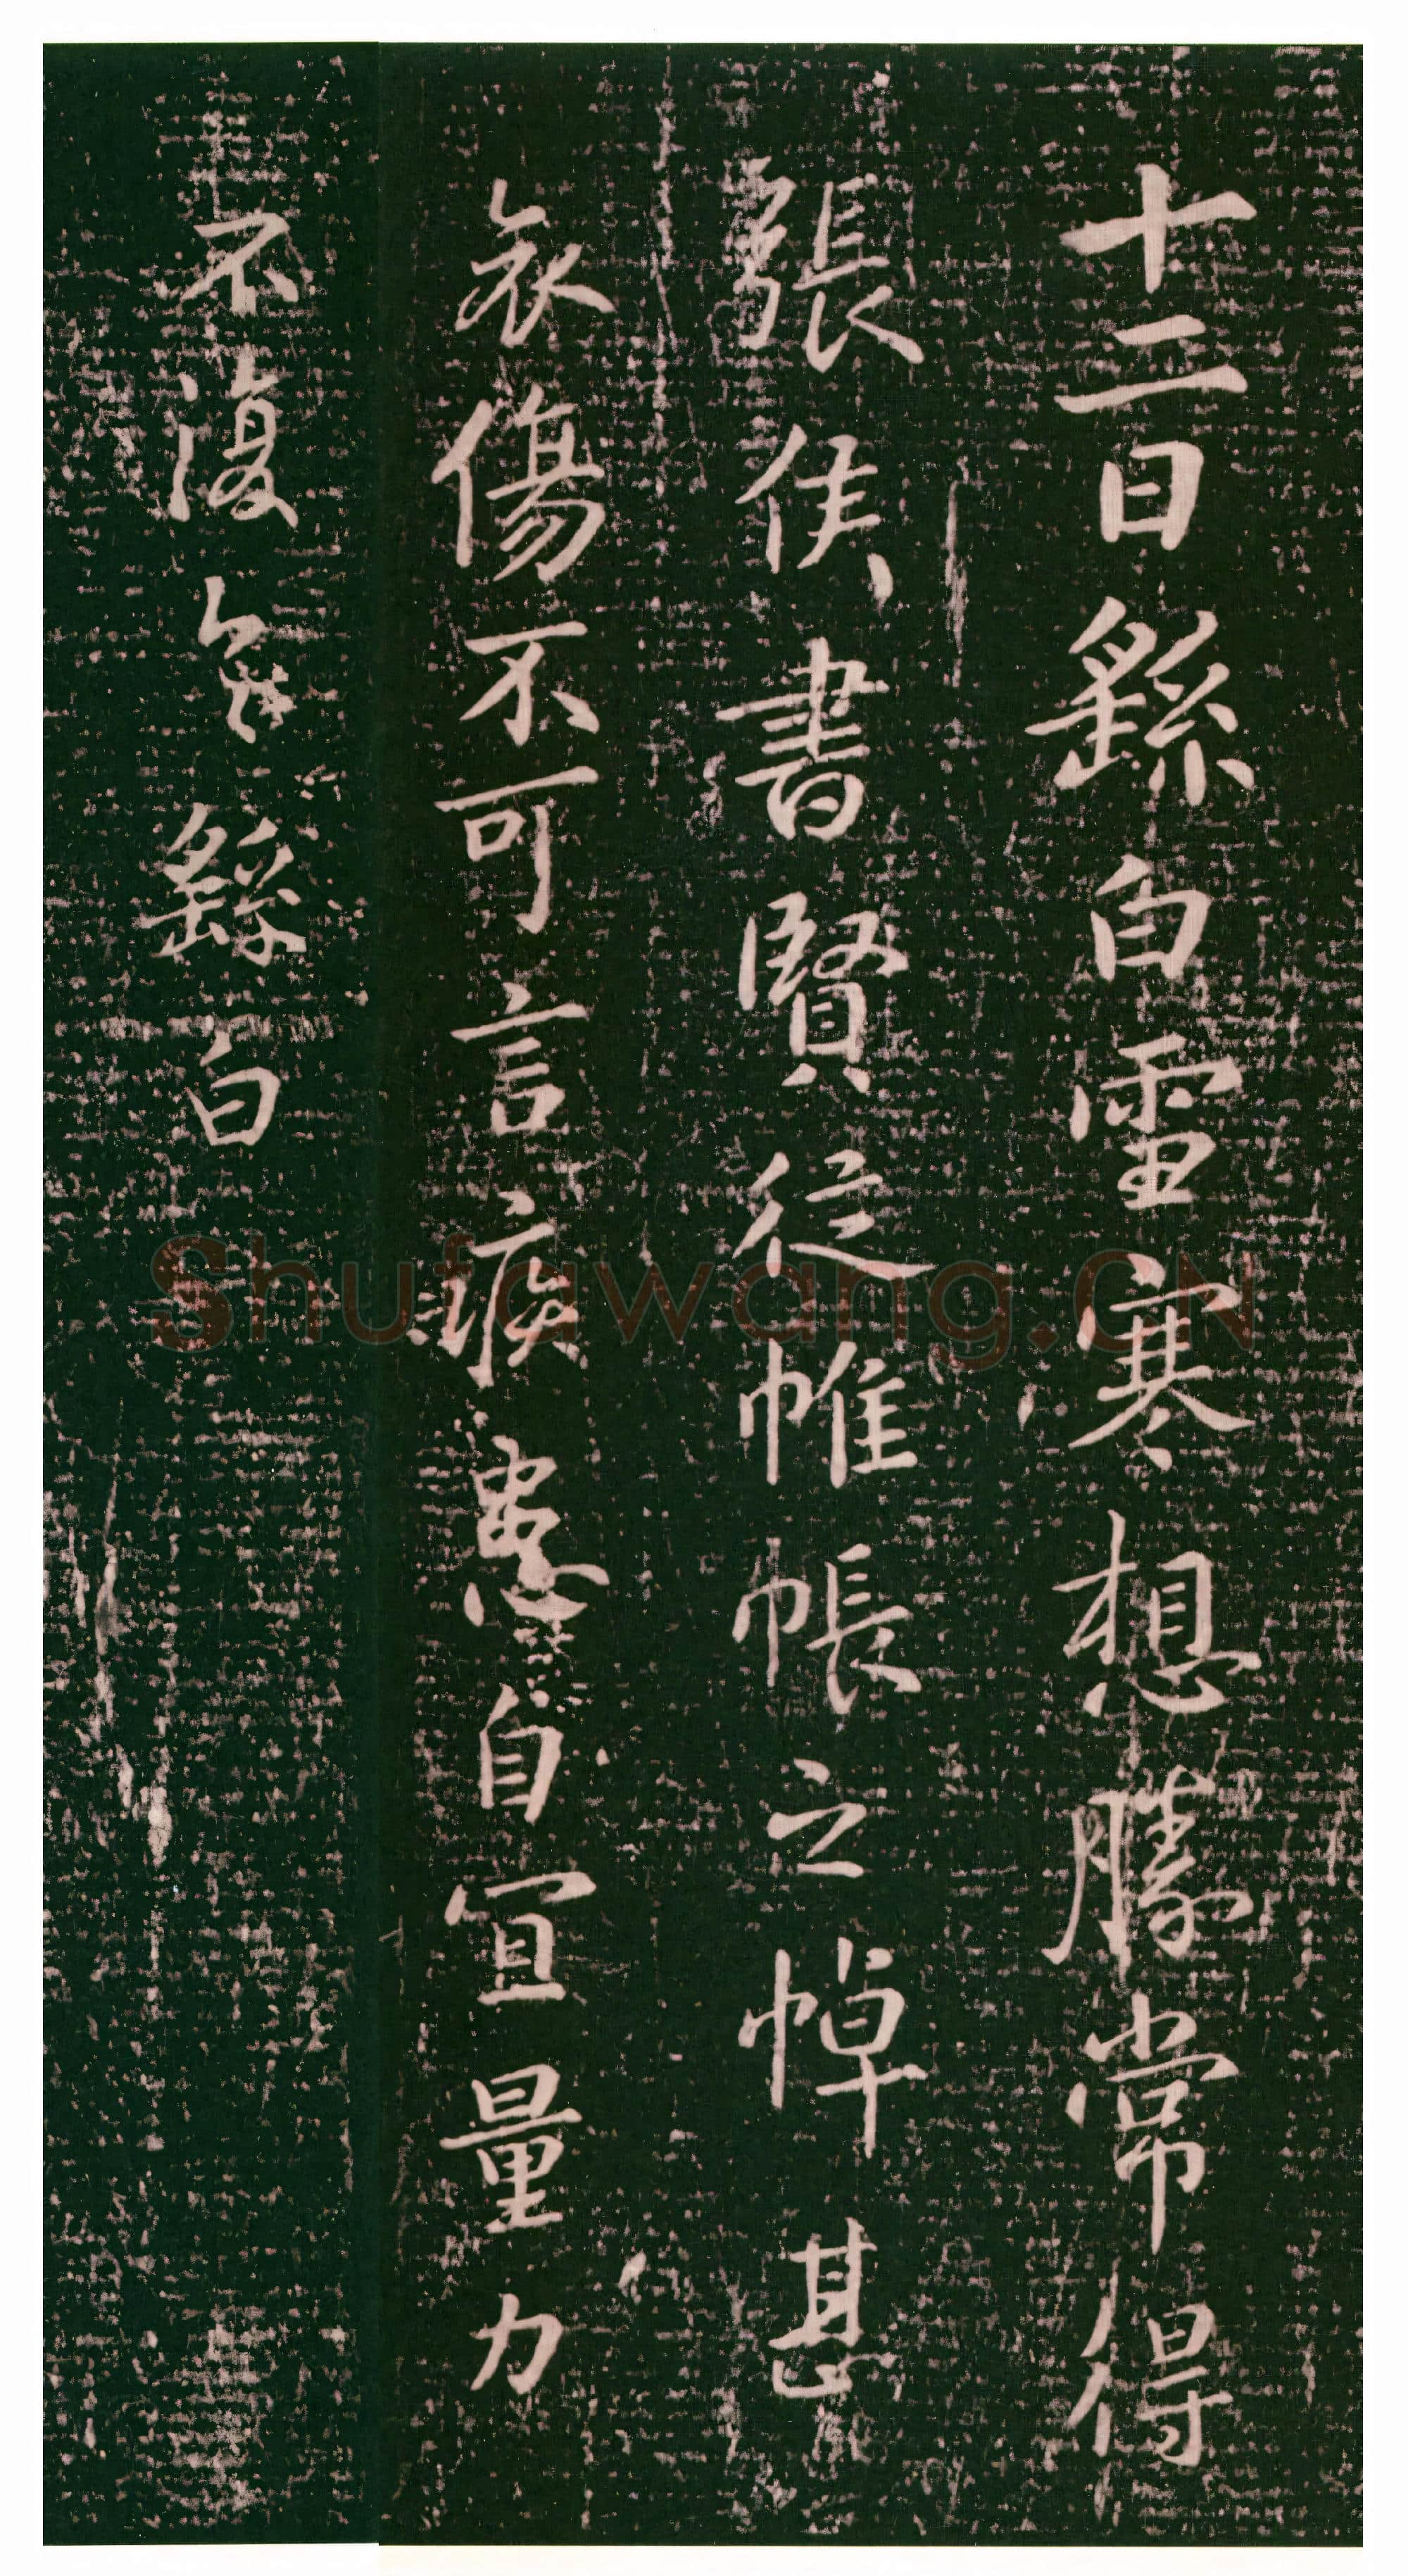 十二日繇白雪寒想勝常得
張侯書賢從帷帳之悼甚
哀傷不可言疾患自宜量力
不復繇白
Shufawang.CN